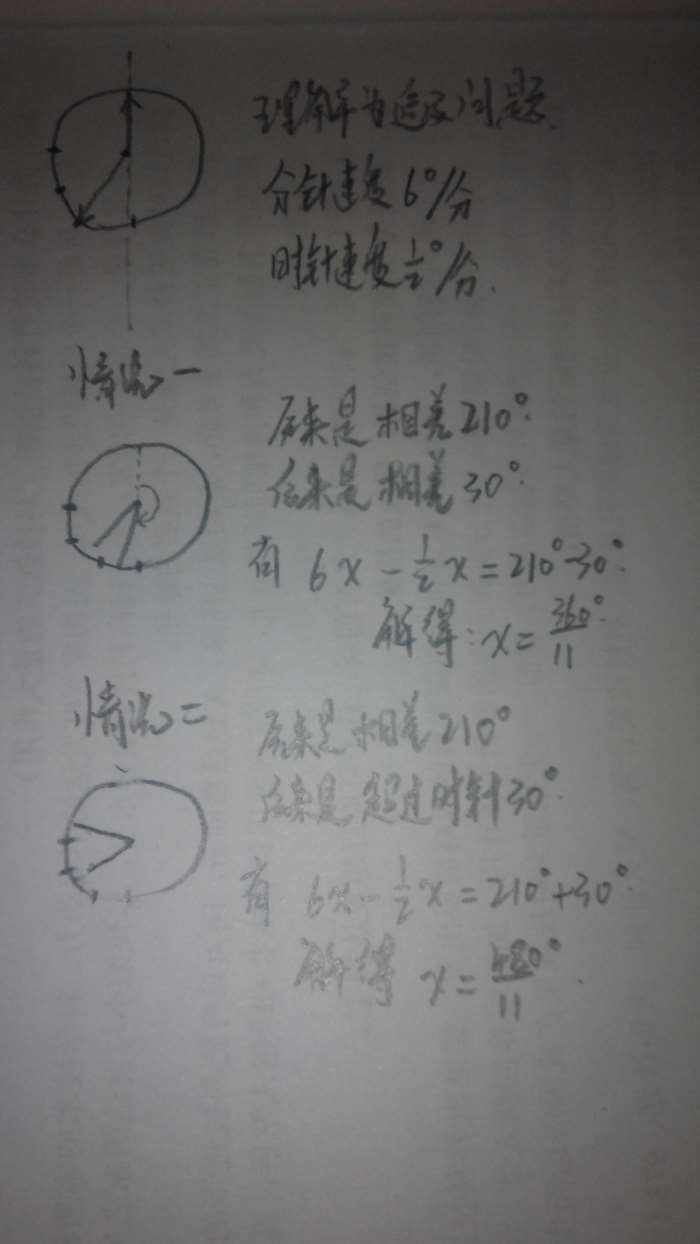 理解为追及问题.
分针速度6°/分
时针速度½°/分.
情况一
原来是相差210°.
后来是相差30°.
有 6x-½x=210°-30°.
解得:x=360°/11
情况二
原来是相差210°
后来是超过时针30°.
有 6x-½x=210°+30°.
解得 x=480°/11.